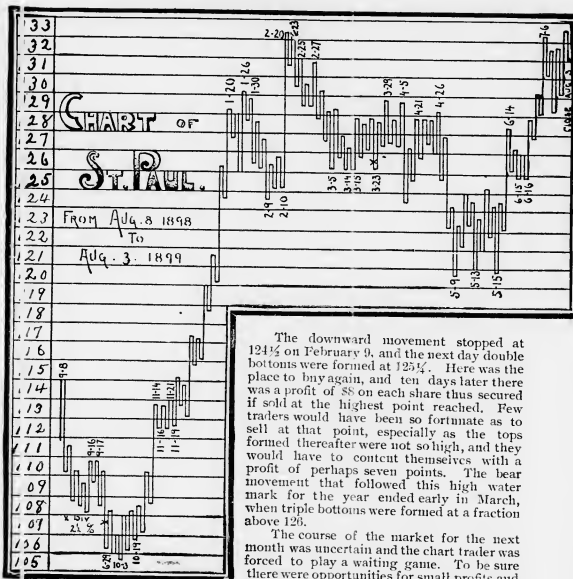 133
132
131
130
129
128
127
126
125
124
123
122
121
120
119
118
117
116
115
114
113
112
111
110
109
108
107
106
105
CHART OF
ST. PAUL.
FROM AUG. 8 1898
TO
AUG. 3. 1899
9-8
9-16
9-17
X DIV
2½ %
6-29
10-3
10-19
11-14
11-16
11-21
11-19
1-20
1-26
1-30
2-9
2-10
2-20
2-23
2-25
2-27
3-5
3-14
3-15
X
3-23
3-29
4-5
4-21
4-26
5-9
5-13
5-15
6-14
6-15
6-16
7-6
CLOSE AUG 3
The downward movement stopped at
124½ on February 9, and the next day double
bottoms were formed at 125¼. Here was the
place to buy again, and ten days later there
was a profit of $8 on each share thus secured
if sold at the highest point reached. Few
traders would have been so fortunate as to
sell at that point, especially as the tops
formed thereafter were not so high, and they
would have to content themselves with a
profit of perhaps seven points. The bear
movement that followed this high water
mark for the year ended early in March,
when triple bottoms were formed at a fraction
above 126.
The course of the market for the next
month was uncertain and the chart trader was
forced to play a waiting game. To be sure
there were opportunities for small profits and